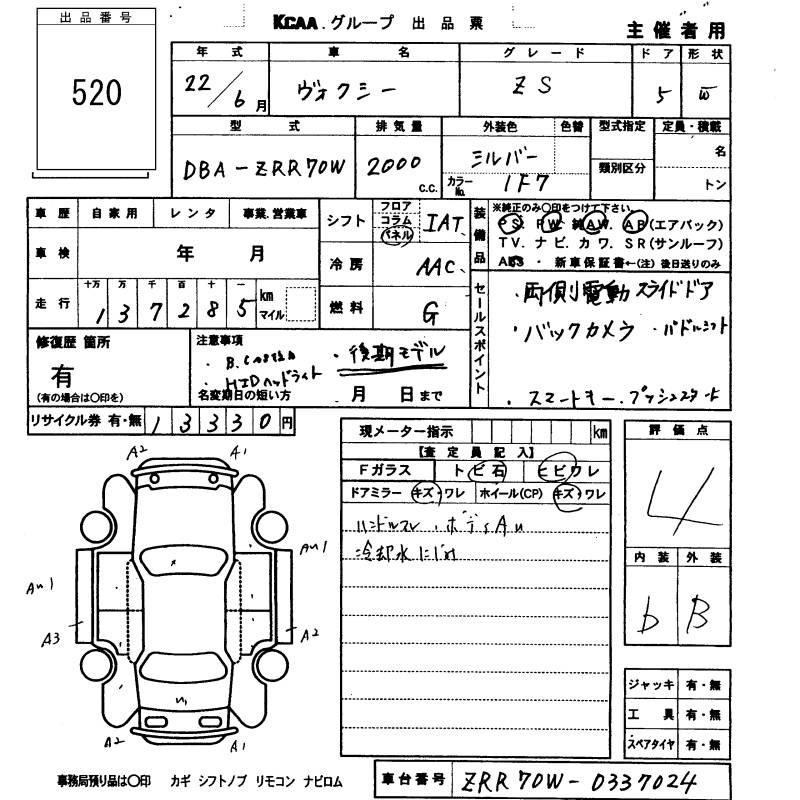 出品番号
520
KCAA.グループ 出品票
主催者用
年式 車名 グレード ドア 形状
22/6月 ヴォクシー ZS 5 W
型式 排気量 外装色 色替 型式指定 定員・積載
DBA-ZRR70W 2000 c.c. シルバー 類別区分 名
カラーNo. 1F7 トン
車歴 自家用 レンタ 事業.営業車
シフト フロア コラム パネル IAT
装備品
※純正のみ○印をつけて下さい
PS. PW. 純AW. AB(エアバック)
TV. ナビ. カワ. SR(サンルーフ)
ABS ・ 新車保証書←(注) 後日送りのみ
車検 年 月
冷房 AAC
走行 十万 万 千 百 十 一
137285 km マイル
燃料 G
セールスポイント
・両側電動スライドドア
・バックカメラ ・パドルシフト
・スマートキー.プッシュスタート
修復歴 箇所
有
(有の場合は○印を)
注意事項
・後期モデル
・HIDヘッドライト
名変期日の短い方 月 日まで
リサイクル券 有・無 13330円
現メーター指示 km
【査定員記入】
Fガラス トビ石 ヒビワレ
ドアミラー キズ・ワレ ホイール(CP) キズ・ワレ
ハンドルスレ ・ボディAu
冷却水にじみ
評価点
4
内装 外装
b B
A2 A1
AU1
AU1
A3 A2
A2 A1
ジャッキ 有・無
工具 有・無
スペアタイヤ 有・無
事務局預り品は○印 カギ シフトノブ リモコン ナビロム
車台番号 ZRR70W-0337024